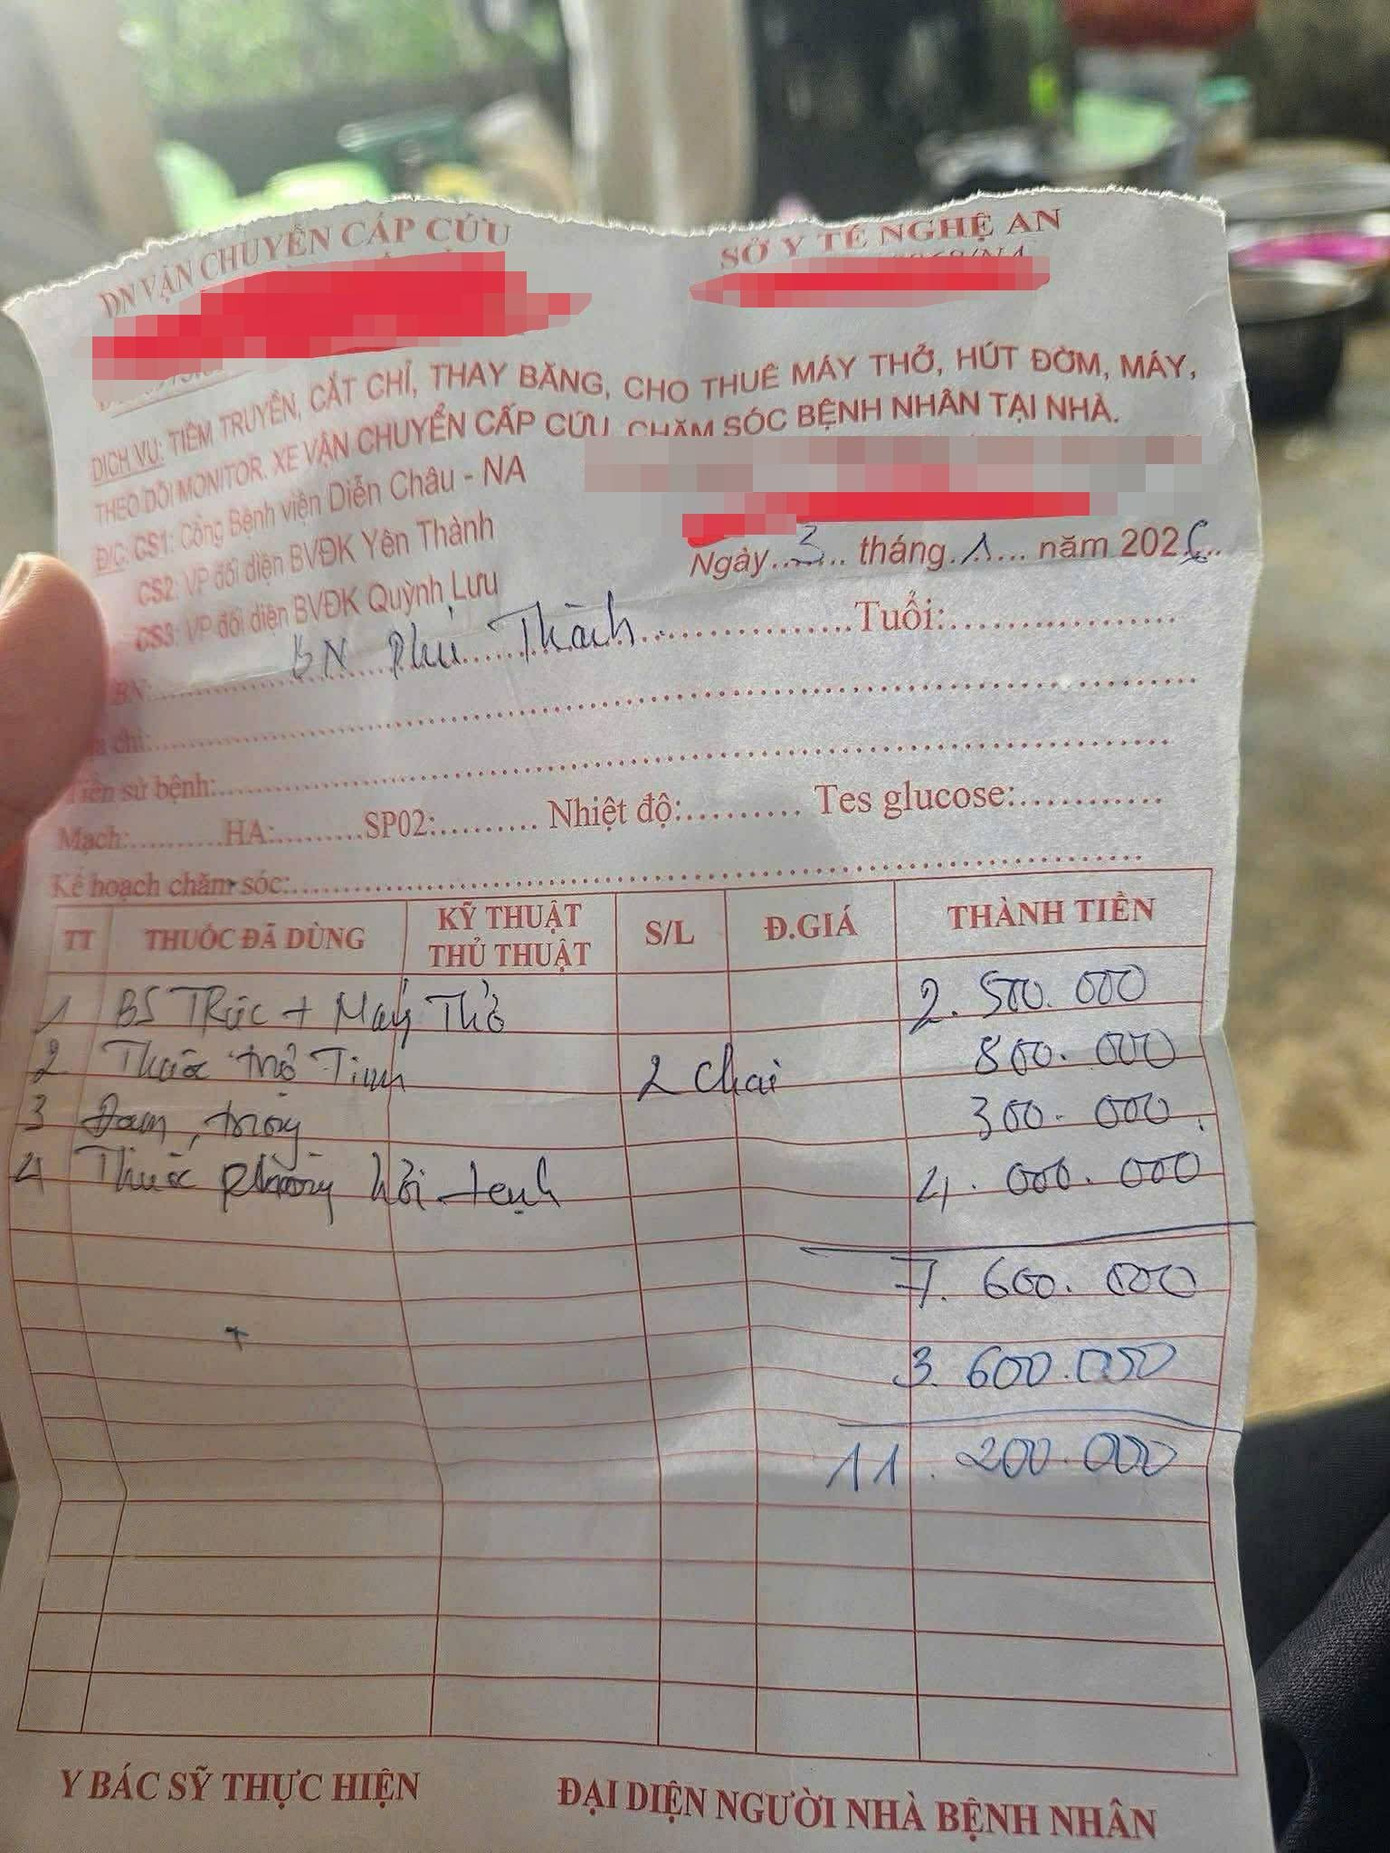 DN VẬN CHUYỂN CẤP CỨU
SỞ Y TẾ NGHỆ AN
DỊCH VỤ: TIÊM TRUYỀN, CẮT CHỈ, THAY BĂNG, CHO THUÊ MÁY THỞ, HÚT ĐỜM, MÁY,
THEO DÕI MONITOR. XE VẬN CHUYỂN CẤP CỨU, CHĂM SÓC BỆNH NHÂN TẠI NHÀ.
Đ/C: CS1: Cổng Bệnh viện Diễn Châu - NA
CS2: VP đối diện BVĐK Yên Thành
CS3: VP đối diện BVĐK Quỳnh Lưu
Ngày..3.. tháng.1... năm 2026..
BN:........BN Phú Thành............Tuổi:..................
chỉ:............................................................
Tiền sử bệnh:............................................................
Mạch:..........HA:.........SP02:.......... Nhiệt độ:.......... Tes glucose:............
Kế hoạch chăm sóc:............................................................
TT THUỐC ĐÃ DÙNG KỸ THUẬT THỦ THUẬT S/L Đ.GIÁ THÀNH TIỀN
1 BS Trực + Máy Thở 2.500.000
2 Thuốc trợ Tim 2 chai 800.000
3 Đam, 300.000
4 Thuốc phòng hồi 4.000.000
7.600.000
3.600.000
11.200.000
Y BÁC SỸ THỰC HIỆN
ĐẠI DIỆN NGƯỜI NHÀ BỆNH NHÂN